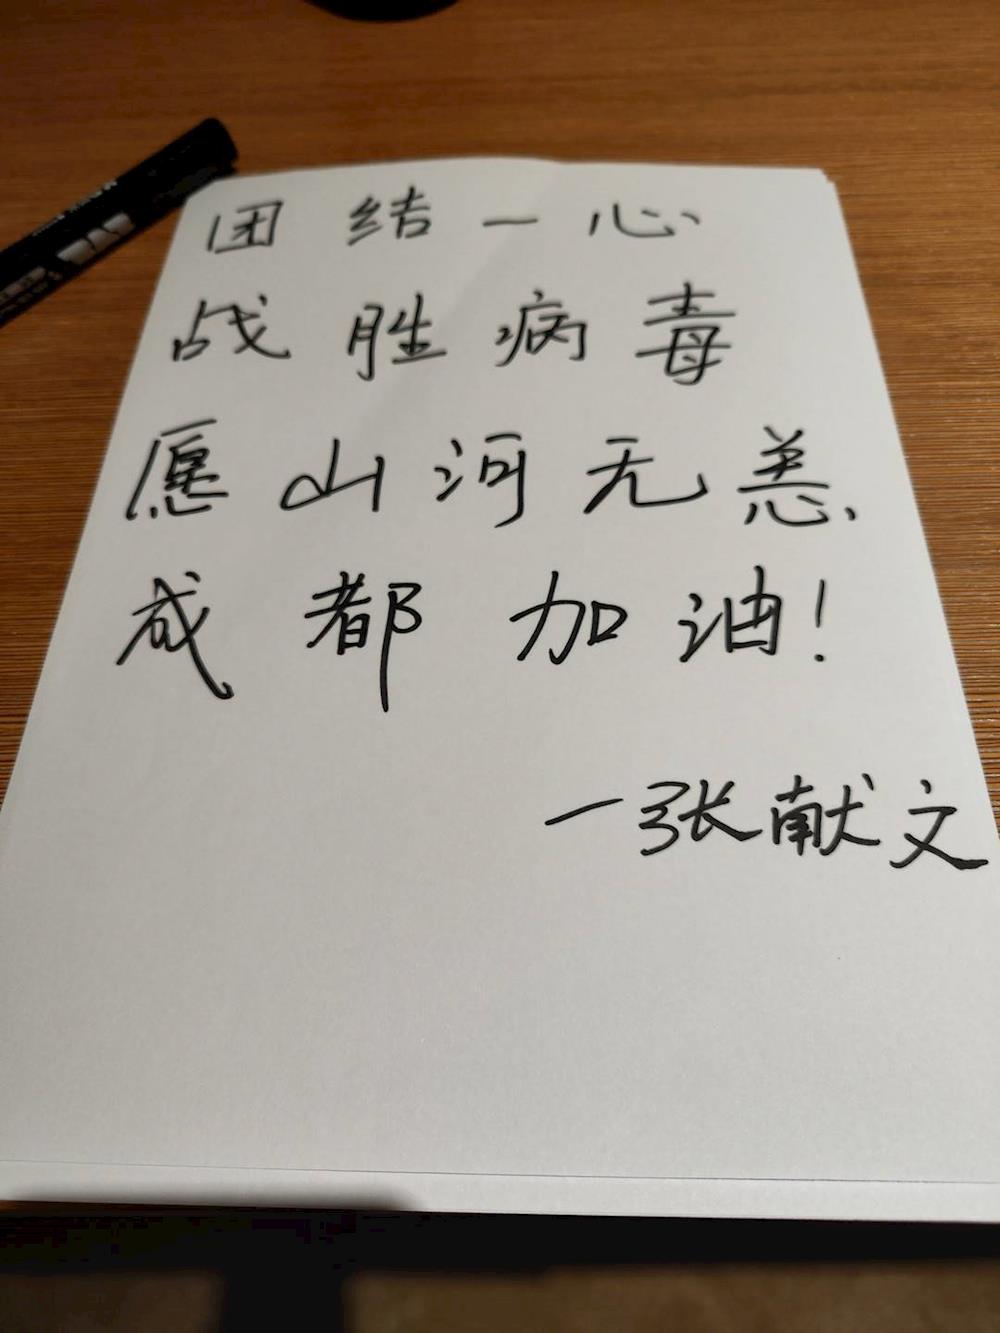 团结一心
战胜病毒
愿山河无恙
成都加油!
—张献文